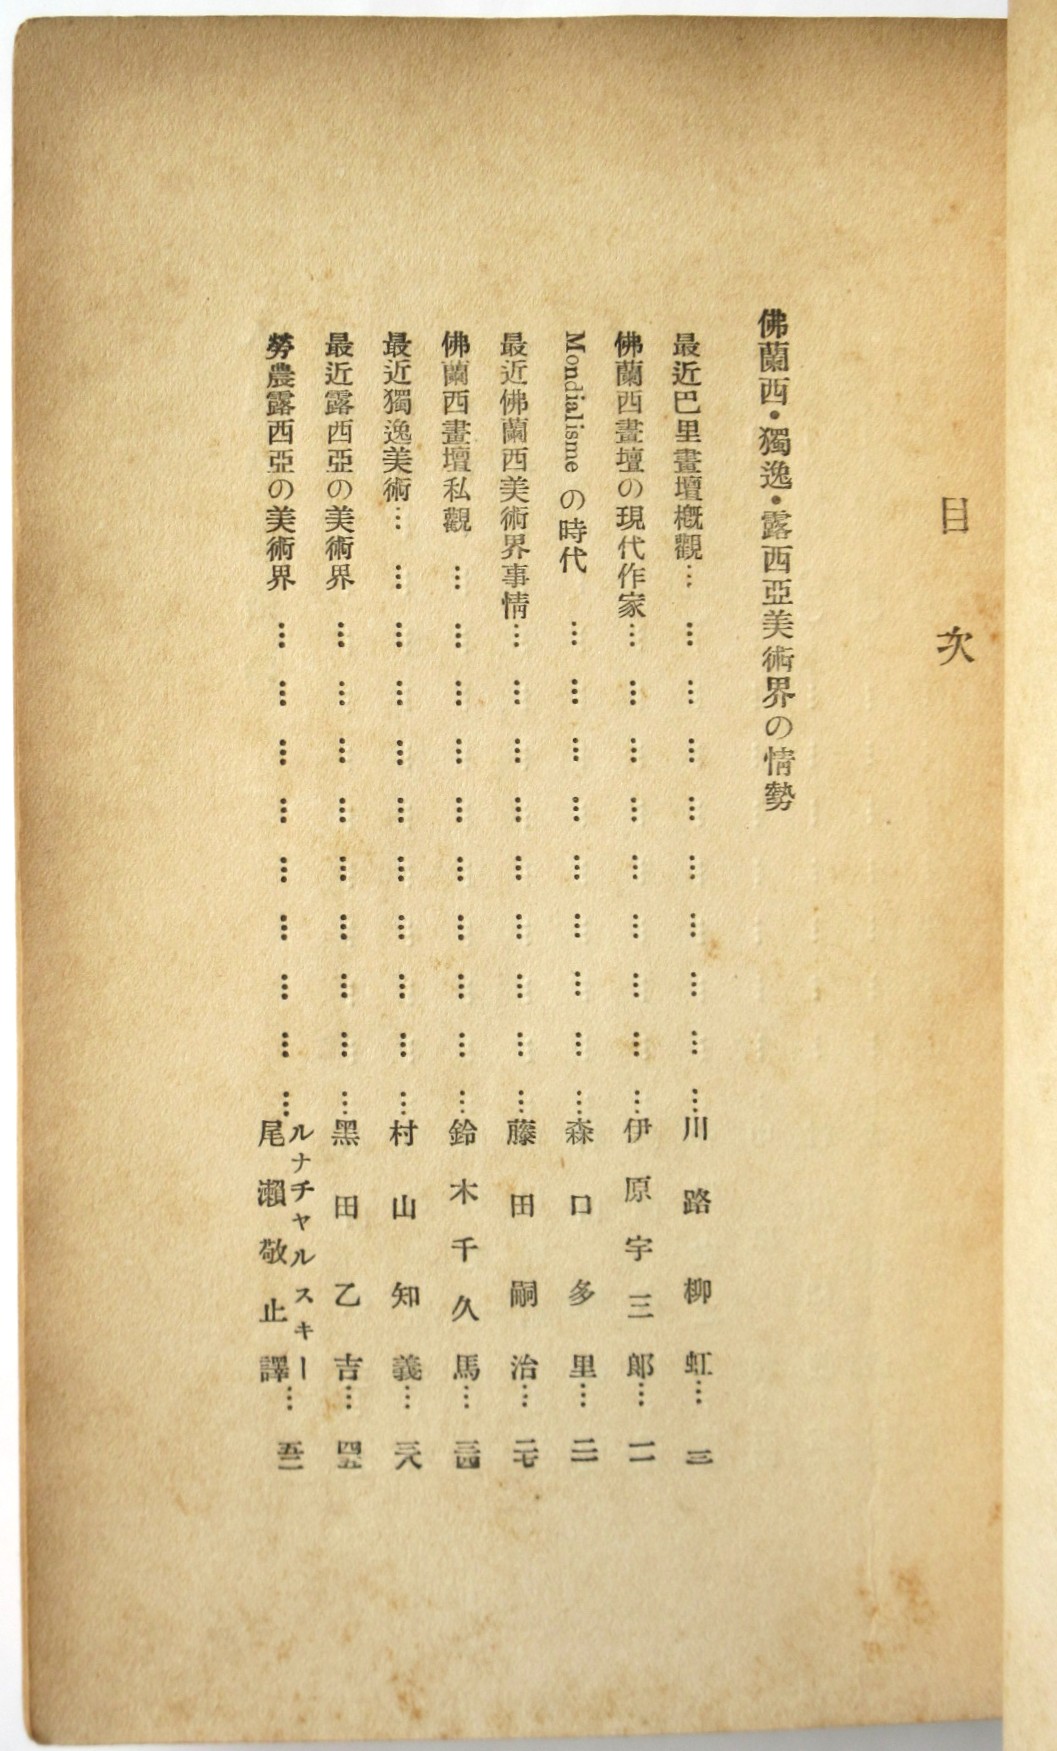 目次
佛蘭西・獨逸・露西亞美術界の情勢
最近巴里畫壇概觀…………………………川路柳虹…三
佛蘭西畫壇の現代作家…………………………伊原宇三郎…一一
Mondialismeの時代…………………………森口多里…二一
最近佛蘭西美術界事情…………………………藤田嗣治…二七
佛蘭西畫壇私觀……………………………鈴木千久馬…三四
最近獨逸美術………………………………村山知義…三八
最近露西亞の美術界…………………………黑田乙吉…四五
勞農露西亞の美術界…………………………ルナチャルスキー 尾瀨敬止譯…五一